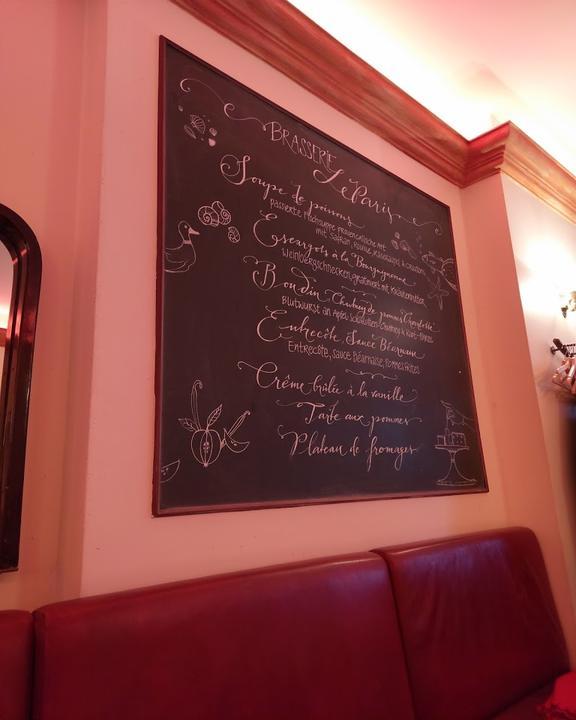 BRASSERIE
Le Paris
Soupe de poissons
passierte Fischsuppe provenzalische Art
mit Safran, Rouille, Käsetapas, & Croutons
Escargots à la Bourguignonne
Weinbergschnecken, gratiniert mit Kräuterbutter
Boudin, Chutney de pommes
Blutwurst an Apfel-Schalotten-Chutney &
Entrecôte, Sauce Béarnaise
Entrecôte, Sauce Béarnaise, Pommes Frites
Crême brûlée à la vanille
Tarte aux pommes
Plateau de fromages